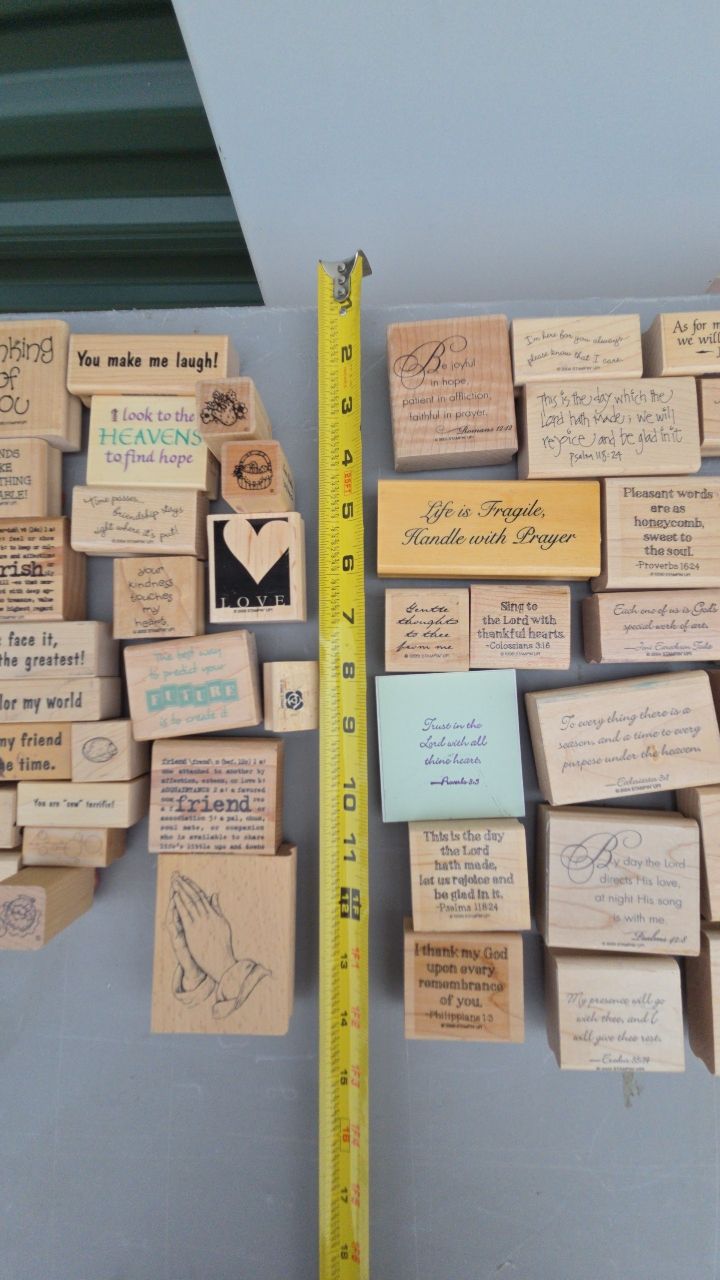 nking
of
ou
You make me laugh!
I look to the
HEAVENS
to find hope
NDS
KE
THING
ABLE!
Time passes...
friendship stays
right where it's put!
rish
your
kindness
touches
my
heart.
LOVE
s face it,
the greatest!
The best way
to predict your
FUTURE
is to create it
for my world
my friend
e time.
You are "sew" terrific!
friend \frend\ n (bef. 12c) 1 a:
one attached to another by
affection, esteem, or love b:
ACQUAINTANCE 2 a: a favored
friend
association 5: a pal, chum,
soul mate, or companion
who is available to share
life's little ups and downs
1
2
3
4
5
6
7
8
9
10
11
1F
12
13
1F1
14
1F2
15
1F3
16
1F4
17
1F5
18
1F6
Be joyful
in hope,
patient in affliction,
faithful in prayer.
Romans 12:12
I'm here for you always
please know that I care.
As for m
we will
This is the day which the
Lord hath made; we will
rejoice and be glad in it
Psalm 118:24
Life is Fragile,
Handle with Prayer
Pleasant words
are as
honeycomb,
sweet to
the soul.
-Proverbs 16:24
Gentle
thoughts
to thee
from me
Sing to
the Lord with
thankful hearts.
-Colossians 3:16
Each one of us is God's
special work of art.
-Joni Eareckson Tada
Trust in the
Lord with all
thine heart.
—Proverbs 3:5
To every thing there is a
season, and a time to every
purpose under the heaven.
This is the day
the Lord
hath made,
let us rejoice and
be glad in it.
-Psalms 118:24
By day the Lord
directs His love,
at night His song
is with me.
—Psalms 42:8
I thank my God
upon every
remembrance
of you.
-Philippians 1:3
My presence will go
with thee, and I
will give thee rest.
—Exodus 33:14